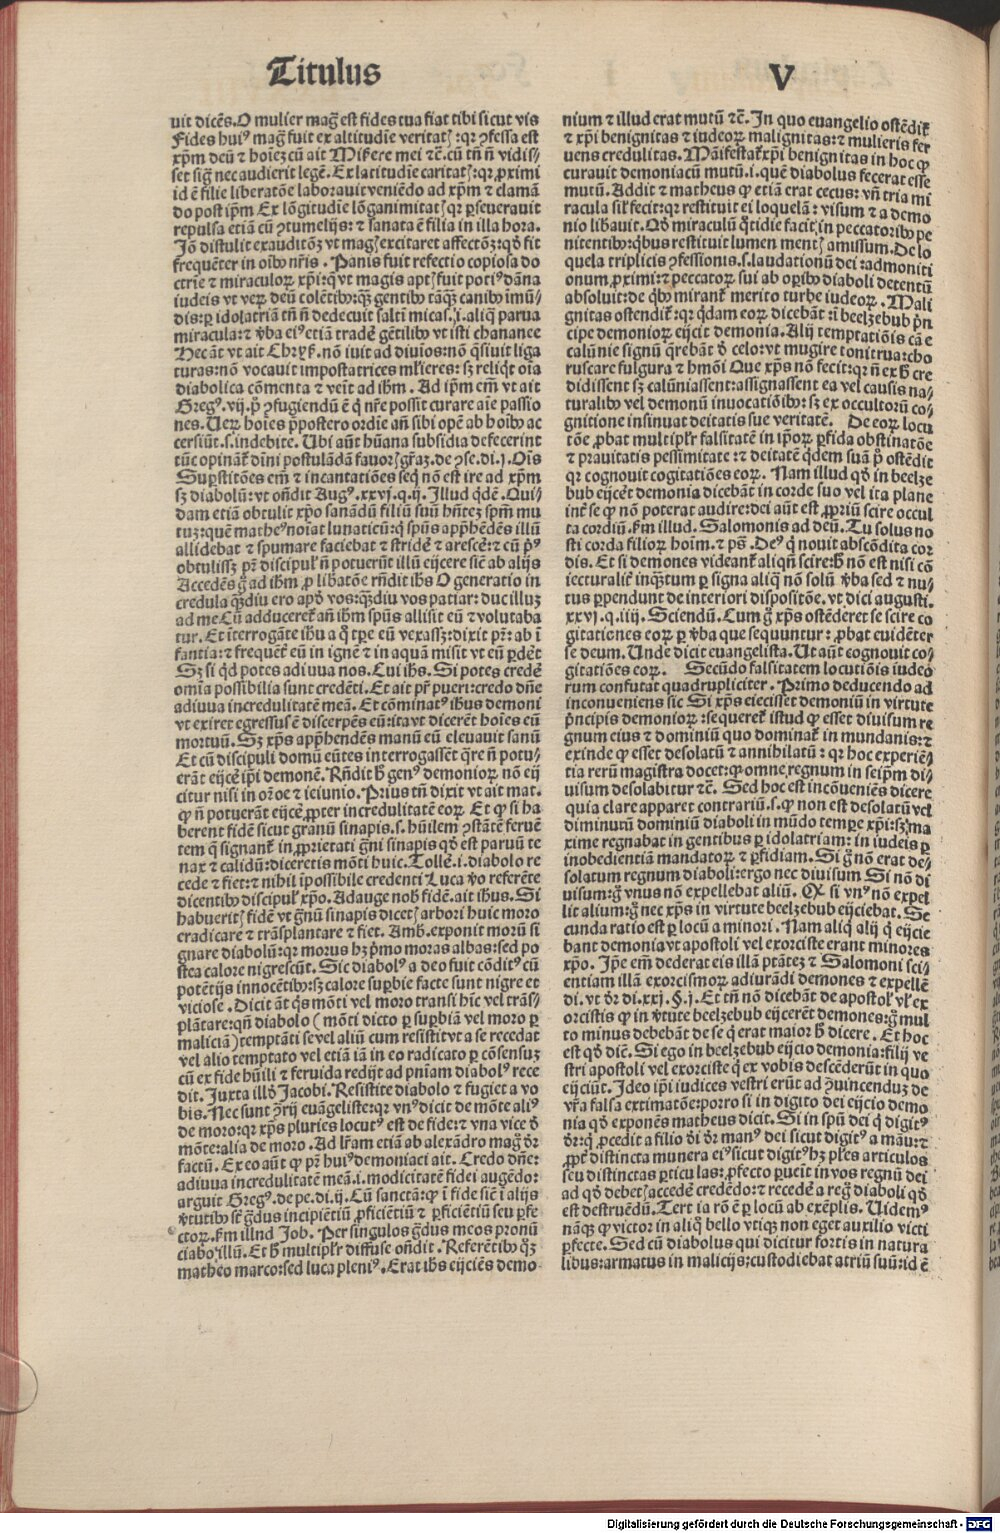 Titulus V
uit dicẽs. O mulier mag̃ est fides tua fiat tibi sicut vis
Fides huiꝰ mag̃ fuit ex altitudīe veritatꝭ: qꝛ ꝯfessa est
xp̄m deū ⁊ hoīeꝫ cū ait Misẽre mei ⁊c̄. cū tn̄ n̄ vidis⸗
set sig̃ nec audierit legẽ. Ex latitudīe caritatꝭ: qꝛ ꝓximi
id ē filie liberatōe laborauit veniẽdo ad xp̄m ⁊ clamā
do post ip̄m Ex lōgitudīe lōganimitatꝭ qꝛ ꝑseuerauit
repulsa etiā cū ꝯtumelijs: ⁊ sanata ē filia in illa hora.
Jō distulit exauditōꝫ vt magꝭ excitaret affectōꝫ: qd̓ fit
frequẽter in oīꝰ nr̄is. Panis fuit refectio copiosa do
ctrīe ⁊ miraculoꝝ xp̄i: q̄ vt magis aptꝭ fuit potiꝰ dāna
iudeis vt veꝝ deū colētibꝰ: qꝫ gentibꝰ tāqꝫ canibꝰ īmū⸗
dis: ꝑ idolatriā tn̄ n̄ dedecuit saltī micas. i. aliq̄ parua
miracula: ⁊ v̄ba eiꝰ etiā tradẽ gẽtilibꝰ vt isti chananee
Hec āt vt ait Chꝛyẜ. nō iuit ad diuios: nō q̄siuit liga
turas: nō vocauit impostatrices ml̓ieres: sꝫ reliq̄t oīa
diabolica cōmenta ⁊ veīt ad ih̄m. Ad ip̄m em̄ vt ait
Gregꝰ. vij. p̄ ꝯfugiendū ē q̄ nr̄e possit curare aīe passio
nes. Ueꝝ hoīes p̄postero ordīe an̄ sibi opē ab hoībꝰ ac
cersiūt. s. indebite. Ubi aūt hūana subsidia defecerint
tūc opinant̃ dīni postulādā fauorꝭ gr̄aꝫ. de ꝯse. di. j. Oīs
Suꝑstitōes em̄ ⁊ incantatiōes seq̄ nō est ire ad xp̄m
sꝫ diabolū: vt on̄dit Augꝰ. xxvj. q. ij. Illud q̄dē. Qui⸗
dam etiā obtulit xp̄o sanādū filiū suū hn̄teꝫ spm̄ mu
tuꝫ: quē matheꝰ noīat lunaticū: q̄ spūs app̄hẽdēs illū
allidebat ⁊ spumare faciebat ⁊ stridē ⁊ arescē: ⁊ cū pꝰ
obtulissꝫ pr̄ discipul̓ n̄ potuerūt illū eijcere siē ab alijs
Accedēs g̊ ad ih̄m ꝓ libatōe rn̄dit ih̄s O generatio in
credula qꝫdiu ero apd̓ vos: qꝫdiu vos patiar: duc illuꝫ
ad me Cū adduceret̃ an̄ ih̄m spūs allisit eū ⁊ volutaba
tur. Et īterrogāte ih̄u a q̊ tꝑe eū vexassꝫ: dixit pr̄: ab ī
fantia: ⁊ frequēt̃ eū in ignē ⁊ in aquā misit vt eū ꝑdēt
Sꝫ si qd̓ potes adiuua nos. Cui ih̄s. Si potes credē
omīa possibilia sunt credēti. Et ait pr̄ pueri: credo dn̄e
adiuua incredulitatē meā. Et cōminatꝰ ih̄us demoni
vt exiret egressus ē discerpēs eū: ita vt dicerēt hoīes eū
mortuū. Sꝫ xp̄s app̄hendēs manū eū eleuauit sanū
Et cū discipuli domū eūtes interrogassēt q̄re n̄ potu⸗
erāt eijcē ip̄i demonē. Rn̄dit h̄ genꝰ demonioꝝ nō eij
citur nisi in or̄oe ⁊ ieiunio. Prius tn̄ dixit vt ait mat.
ꝙ n̄ potuerāt eijcē ꝓpter incredulitatē eoꝝ. Et ꝙ si ha
berent fidē sicut granū sinapis. s. hūilem ꝯstātē feruē
tem q̄ signant̃ in ꝓprietati g̃ni sinapis qd̓ est paruū te
nax ⁊ calidū: diceretis mōti huic. Tolle. i. diabolo re
cede ⁊ fiet: ⁊ nihil īpossibile credenti Luca v̄o referēte
dicentibꝰ discipul̓ xp̄o. Adauge nob̓ fidē. ait ih̄us. Si
habueritꝭ fidē vt g̃nū sinapis dicetꝭ arbori huic moro
eradicare ⁊ trāsplantare ⁊ fiet. Amb̓. exponit morū si
gnare diabolū: qꝛ morus hꝫ pͥmo moras albas: sed po
stea calore nigrescūt. Sic diabolꝰ a deo fuit cōditꝰ cū
potētijs innocētibꝰ: sꝫ calore suꝑbie facte sunt nigre et
viciose. Dicit āt q̄s mōti vel moro transi hīc vel trās⸗
plātare: qn̄ diabolo (mōti dicto ꝑ suꝑbiā vel moro ꝑ
maliciā) temptāti se vel aliū cum resistit vt a se recedat
vel alio temptato vel etiā iā in eo radicato ꝑ cōsensuꝫ
cū ex fide hūili ⁊ feruida redijt ad pn̄iam diabolꝰ rece
dit. Juxta illd̓ Jacobi. Resistite diabolo ⁊ fugiet a vo
bis. Nec sunt ꝯ̄rij euāgeliste: qꝛ vnꝰ dicit de mōte aliꝰ
de moro: qꝛ xp̄s pluries locutꝰ est de fide: ⁊ vna vice d̓
mōte: alia de moro. Ad lr̄am etiā ab alexādro mag̊ d̓r
factū. Ex eo aūt ꝙ pr̄ huiꝰ demoniaci ait. Credo dn̄e:
adiuua incredulitatē meā. i. modicitatē fidei augēdo:
arguit Gregꝰ. de pe. di. ij. Cū sanctā: ꝙ ī fide siē ī alijs
v̄tutibꝰ sc̄ g̃dus incipiētiū ꝓficiētiū ⁊ ꝑficiētiū seu ꝑfe
ctoꝝ. ẜm illnd Job. Per singulos g̃dus meos pronū
ciabo illū. Et h̄ multipl̓r diffuse on̄dit. Referētibꝰ q̄ꝫ
matheo marco: sed luca pleniꝰ. Erat ih̄s eijciēs demo⸗
nium ⁊ illud erat mutū ⁊c̄. In quo euangelio ostēdit̃
⁊ xp̄i benignitas ⁊ iudeoꝝ malignitas: ⁊ mulieris fer
uens credulitas. Māifestat̃ xp̄i benignitas in hoc ꝙ
curauit demoniacū mutū. i. quē diabolus fecerat esse
mutū. Addit ⁊ matheus ꝙ etiā erat cecus: vn̄ tria mi
racula sil̓ fecit: qꝛ restituit ei loquelā: visum ⁊ a demo
nio libauit. Qd̓ miraculū q̊tidie facit in peccatoribꝰ pe
nitentibꝰ: qͥbus restituit lumen mentꝭ amissum. De lo
quela triplicis ꝯfessionis. s. laudationū dei: admoniti
onum ꝓximi: ⁊ peccatoꝝ sui ab oꝑibꝰ diaboli detentū
absoluit: de qͥbꝰ mirant̃ merito turbe iudeoꝝ. Mali
gnitas ostendit̃: qꝛ q̄dam eoꝝ dicebāt: ī beelzebub pͥn
cipe demonioꝝ eijcit demonia. Alij temptatiōis cā e
calūnie signū q̄rebāt d̓ celo: vt mugire tonitrua: cho
ruscare fulgura ⁊ hmōi Que xp̄s nō fecit: qꝛ n̄ ex h̄ cre
didissent sꝫ calūniassent: assignassent ea vel causis na⸗
turalibꝰ vel demonū inuocatiōibꝰ: sꝫ ex occultorū co⸗
gnitione insinuat deitatis sue veritatē. De eoꝝ locu
tōe ꝓbat multipl̓r falsitatē in ip̄oꝝ ꝑfida obstinatōe
⁊ prauitatis pessimitate: ⁊ deitatē q̄dem suā pͥ ostēdit
qꝛ cognouit cogitatiōes eoꝝ. Nam illud qd̓ in beelze
bub eijcēt demonia dicebāt in corde suo vel ita plane
int̃ se ꝙ nō poterat audire: dei aūt est ꝓpriū scire occul
ta cordiū. ẜm illud. Salomonis ad deū. Tu solus no
sti corda filioꝝ hoīm. ⁊ ps̄. Deꝰ q̄ nouit abscōdita cor
dis. Et si demones videant̃ aliqn̄ scire: h̄ nō est nisi cō
iecturalit̃ inqͣꝫtum ꝑ signa aliq̄ nō solū v̄ba sed ⁊ nu⸗
tus ꝑpendunt de interiori dispositōe. vt dici augusti.
xxvj. q. iiij. Sciendū. Cum g̊ xp̄s ostēderet se scire co
gitationes eoꝝ ꝑ v̄ba que sequuntur: ꝓbat euidēter
se deum. Unde dicit euangelista. Ut aūt cognouit co⸗
gitatiōes eoꝝ. Secūdo falsitatem locutiōis iudeo
rum confutat quadrupliciter. Primo deducendo ad
inconueniens sic Si xp̄s eiecisset demoniū in virtute
pͥncipis demonioꝝ: sequeret̃ istud ꝙ esset diuisum re
gnum eius ⁊ dominiū quo dominat̃ in mundanis: ⁊
exinde ꝙ esset desolatū ⁊ annihilatū: qꝛ hoc experiē⸗
tia rerū magistra docet: ꝙ omne regnum in seip̄m di⸗
uisum desolabitur ⁊c̄. Sed hoc est incōueniēs dicere
quia clare apparet contrariū. s. ꝙ non est desolatū vel
diminutū dominiū diaboli in mūdo tempꝛe xp̄i: sꝫ ma
xime regnabat in gentibus ꝑ idolatriam: in iudeis ꝑ
inobedientiā mandatoꝝ ⁊ ꝑfidiam. Si g̊ nō erat de⸗
solatum regnum diaboli: ergo nec diuisum Si nō di
uisum: g̊ vnus nō expellebat aliū. Qꝛ si vnꝰ nō expel
lit alium: g̊ nec xp̄s in virtute beelzebub eijciebat. Se
cunda ratio est ꝑ locū a minori. Nam aliq̄ alij q̄ eijcie
bant demonia vt apostoli vel exorciste erant minores
xp̄o. Ip̄e em̄ dederat eis illā ptātē ⁊ Salomoni sci⸗
entiam illām exorcismoꝝ adiurādi demones ⁊ expellē
di. vt d̓r di. xxj. §. j. Et tn̄ nō dicebāt de apostol̓ vl̓ ex
orcistis ꝙ in v̄tute beelzebub eijcerēt demones: g̊ mul
to minus debebāt de se q̄ erat maior h̄ dicere. Et hoc
est qd̓ dic̄. Si ego in beelzebub eijcio demonia: filij ve
stri apostoli vel exorciste q̄ ex vobis descēderūt in quo
eijciūt. Ideo ip̄i iudices vestri erūt ad ꝯuincenduꝫ de
vr̄a falsa extimatōe: porro si in digito dei eijcio demo
nia qd̓ exponēs matheus dicit. Si in spū dei q̄ digitꝰ
d̓r: q̄ ꝓcedit a filio d̓i d̓r manꝰ dei sicut digitꝰ a manu: ⁊
ꝓpt̃ distincta munera eiꝰ sicut digitꝰ hꝫ pl̓es articulos
seu distinctas ꝑticulas: ꝓfecto ꝑueīt in vos regnū dei
ad qd̓ debetꝭ accedē credēdo: ⁊ recedē a reg̊ diaboli qd̓
est destruēdū. Tertia rō ē ꝑ locū ab exēplis. Uidemꝰ
nāqꝫ ꝙ victor in aliq̊ bello vtiqꝫ non eget auxilio victi
ꝑfecte. Sed cū diabolus qui dicitur fortis in natura
libus: armatus in malicijs; custodiebat atriū suū: id ē
Digitalisierung gefördert durch die Deutsche Forschungsgemeinschaft - DFG